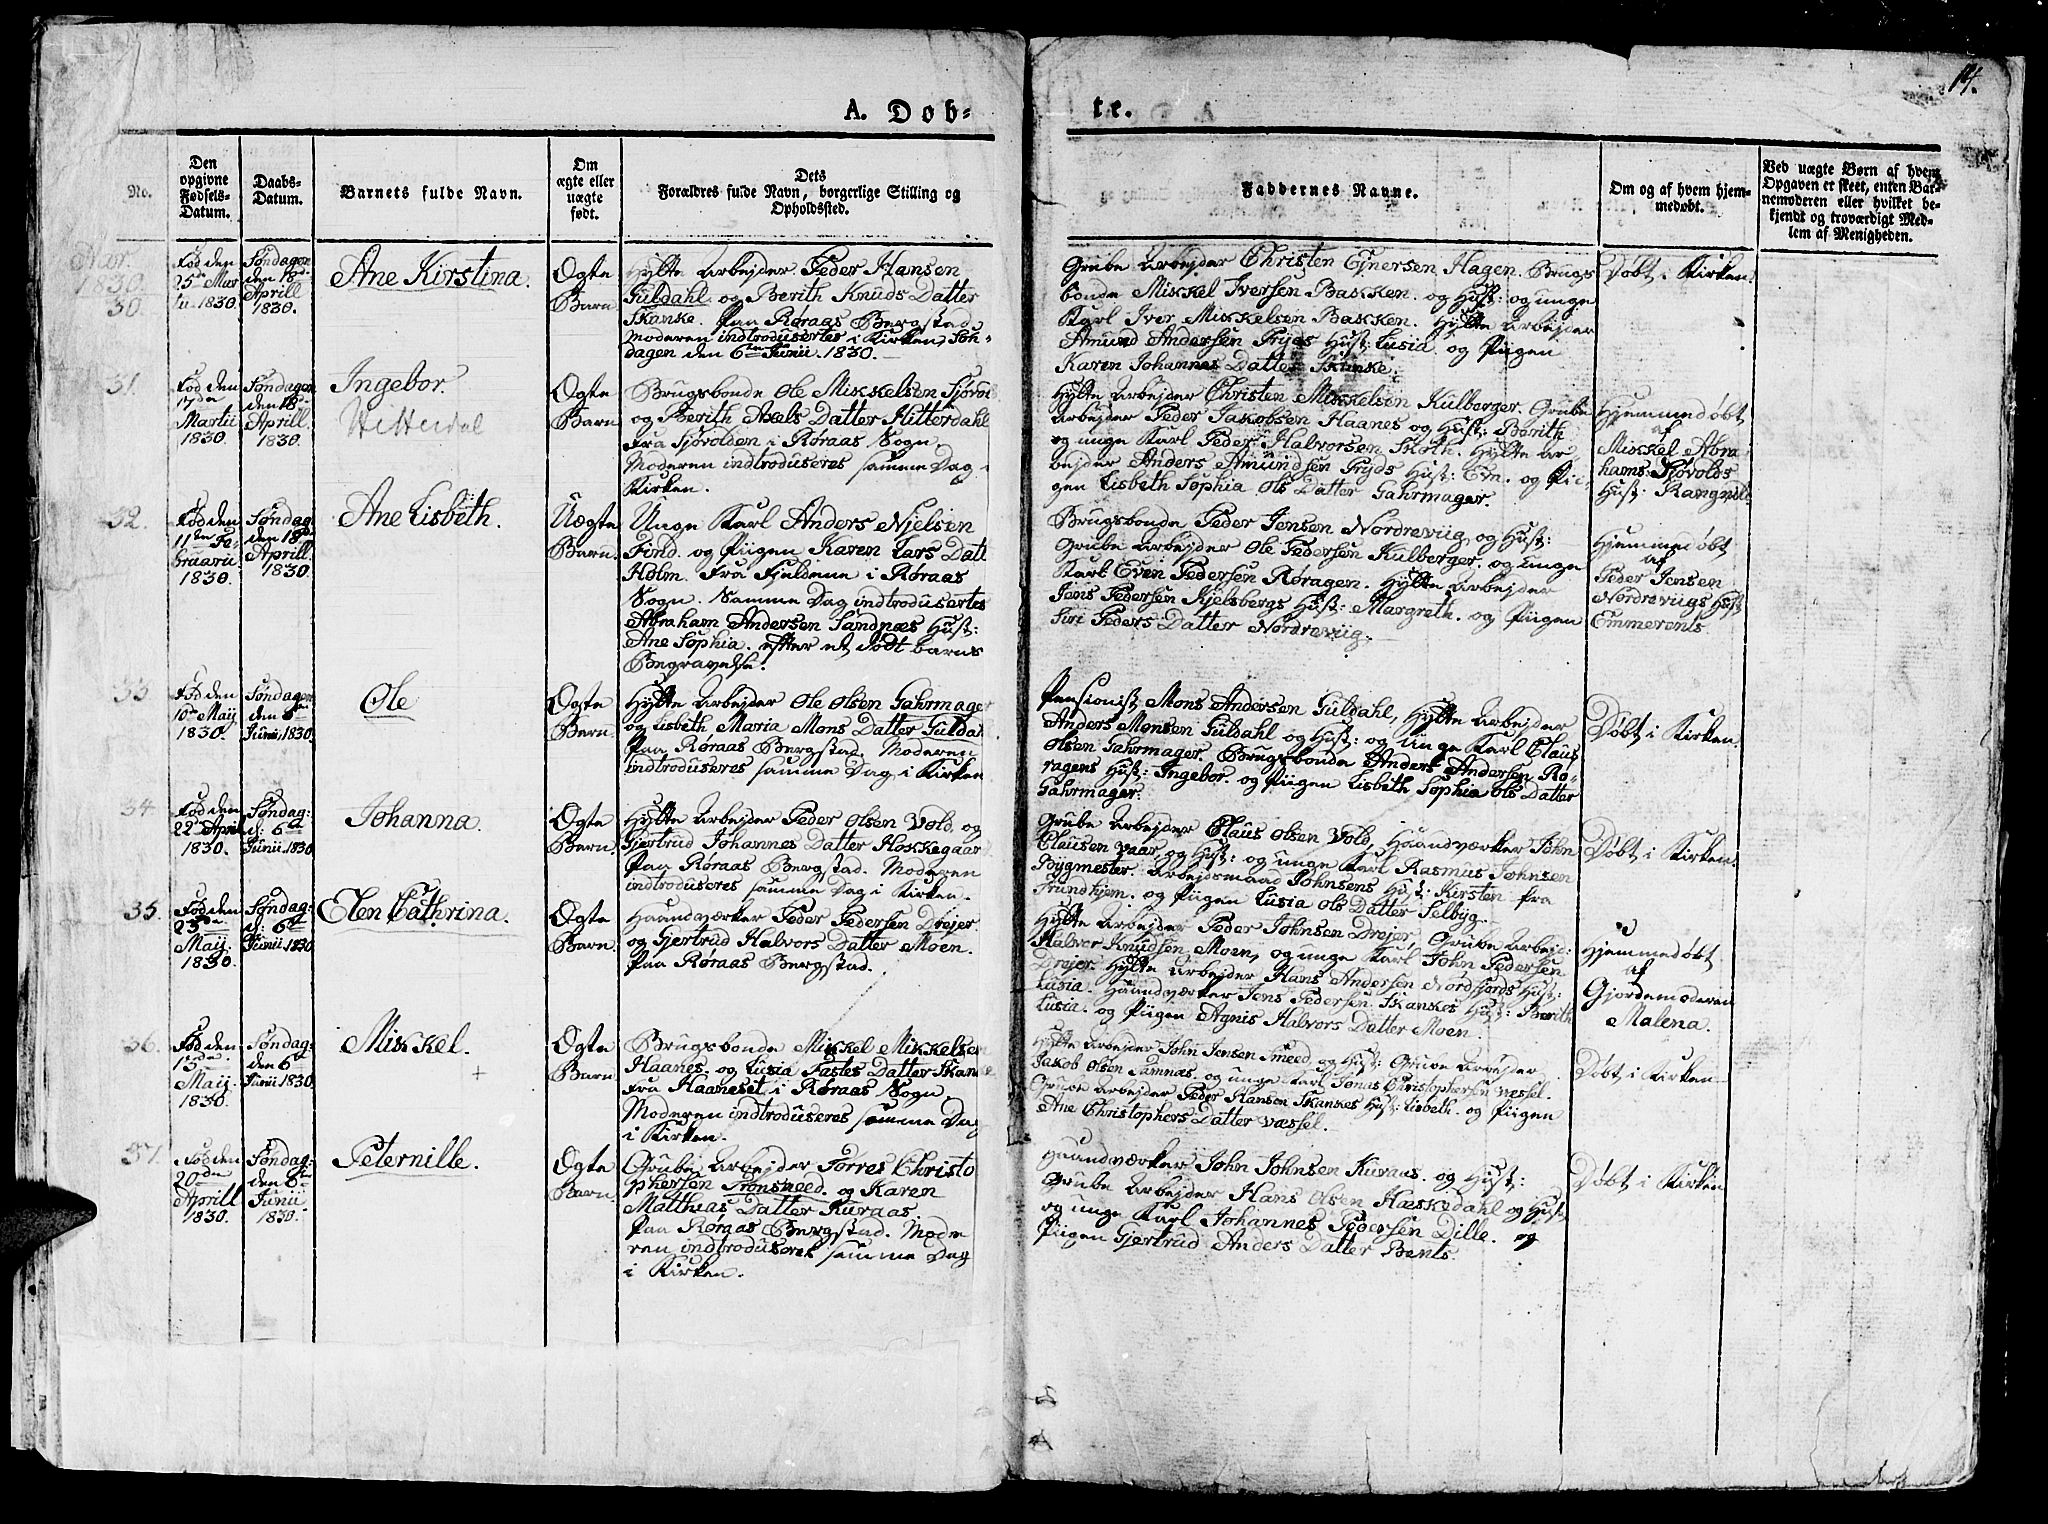 14.
A. Døb-
te.
No.
Den
opgivne
Fødsels-
Datum.
Daabs-
Datum.
Barnets fulde Navn.
Om
ægte eller
uægte
født.
Dets
Forældres fulde Navn, borgerlige Stilling og
Opholdssted.
Faddernes Navne.
Om og af hvem hjem-
medøbt.
Ved uægte Børn af hvem
Opgaven er skeet, enten Bar-
nemoderen eller hvilket be-
kjendt og troværdigt Med-
lem af Menigheden.
1830.
30.
Fød den
25de Mar
tii 1830.
Søndagen
den 18de
Aprill
1830.
Ane Kirstina.
Ægte
Barn
Hytte Arbejder Peder Hansen
Guldahl og Berith Knuds Datter
Skanke. Paa Røraas Bergstad,
Moderen indtrodusertes i Kirken, Søn-
dagen den 6te Junii 1830.
Grube Arbejder Christen Ejnersen Hagen. Brugs
bonde Mikkel Iversen Bakken. og Hust: og unge
Karl Iver Mikkelsen Bakken. Hytte Arbejder
Amund Andersen Pryds Hust: Lusia. og Piigen
Karen Johannes Datter Skanke.
Døbt i Kirken.
31.
Fød den
17de
Martii
1830.
Søndagen
den 18de
Aprill.
1830.
Ingebor.
Hitterdal
Ægte
Barn
Brugsbonde Ole Mikkelsen Sjøvol
og Berith Axels Datter Hitterdahl
fra Sjøvolden i Røraas Sogn,
Moderen indtroduseres samme Dag i
Kirken.
Hytte Arbejder Christen Mikkelsen Kulberger. Grube
Arbejder Peder Jakobsen Haanes og Hust: Berith
og unge Karl Peder Halvorsen Skoth. Hytte Ar
bejder Anders Amundsen Pryds Hust: Evn. og Pii-
gen Lisbeth Sophia Ols Datter Gahrmager.
Hjemmedøbt
af
Mikkel Abra
hams Sjøvolds
Hust: Rangnild
32.
Fød den
11te Fe-
bruarii
1830.
Søndag.
den 18de
Aprill
1830.
Ane Lisbeth.
Uægte
Barn.
Unge Karl Anders Njelsen
Find. og Piigen Karen Lars Datt
Holm. fra Fjeldene i Røraas
Sogn. Samme Dag indtrodusertes
Abraham Andersen Sandnæs Hust:
Ane Sophia. efter et Født barns
Begravelse.
Brugsbonde Peder Jensen Nordreviig og Hust:
Grube Arbejder Ole Pedersen Kulberger. og unge
Karl Even Pedersen Røragen. Hytte Arbejder
Jens Pedersen Kjelsbergs Hust: Margreth. og Piigen
Siri Peders Datter Nordreviig.
Hjemmedøbt
af
Peder Jensen
Nordreviigs Hust
Emmerents.
33
Fød den
10de Maij
1830.
Søndagen
den 6te
Junii, 1830.
Ole
Ægte
Barn.
Hytte Arbejder Ole Olsen Gahrmager
og Lisbeth Maria Mons Datter Guldal
Paa Røraas Bergstad. Moderen
indtroduseres samme Dag i Kirken
Pensionist Mons Andersen Guldahl, Hytte Arbejder
Anders Monsen Guldahl og Hust: og Unge Karl Claus
Olsen Gahrmager. Brugsbonde Anders Andersen Rø-
ragens Hust: Ingebor. og Piigen Lisbeth Sophia Ols Datter
Gahrmager.
Døbt i Kirken.
34
Fød den
22de April
1830.
Søndag:
d: 6te
Junii. 1830
Johanna.
Ægte
Barn.
Hytte Arbejder Peder Olsen Vold og
Gjertrud Johannes Datter Floskegaar
Paa Røraas Bergstad. Moderen
indtroduseres samme Dag i Kirken.
Grube Arbejder Claus Olsen Vold, Haandværker John
Clausen Vaar og Hust: og unge Karl Rasmus Johnsen
Bygmester. Arbejdsmaad Johnsens Hust: Kirsten fra
Trundhjem. og Piigen Lusia Ols Datter Selbyg.
Døbt i Kirken.
35.
Fød den
23de
Maij.
1830.
Søndag:
d: 6te
Junii. 1830
Elen Cathrina.
Ægte
Barn.
Haandværker Peder Pedersen Drejer
og Gjertrud Halvors Datter Moen.
Paa Røraas Bergstad.
Hytte Arbejder Peder Johnsen Drejer, Grube Arbejd:
Halvor Knudsen Moen, og unge Karl John Pedersen
Drejer. Hytte Arbejder Hans Andersen Nordfjords Hust:
Lusia. Haandværker Jens Pedersen Skankes Hust: Berith
Lusia. og Piigen Agnis Halvors Datter Moen.
Hjemmedøbt
af
Gjordemoderen
Malena.
36.
Fød den
13de
Maij.
1830.
Søndag:
den 6te
Junii 1830.
Mikkel.
+
Ægte
Barn
Brugsbonde Mikkel Mikkelsen
Haanes. og Lusia Fastes Datter Skanke
fra Haaneset i Røraas Sogn,
Moderen indtroduseres samme Dag
i Kirken.
Hytte Arbejder John Jensen Smeed, og Hust: Grube Arbejder
Jakob Olsen Samnas. og unge Karl Jonas Christophersen Væssel.
Grube Arbejder Peder Hansen Skankes Hust: Lisbeth. og Piigen
Ane Christophers Datter Væssel.
Døbt i Kirken
37.
Fød den
20de
Aprill
1830.
Søndag:
den 6te
Junii
1830.
Peternille.
Ægte
Barn.
Grube Arbejder Torres Christo
phersen Trønsmeed. og Karen
Matthias Datter Kuraas.
Paa Røraas Bergstad. Mode
ren indtroduseret samme Dag
i Kirken.
Haandværker John Johnsen Kuraas. og Hust:
Grube Arbejder Hans Olsen Hæskedahl og Hust:
og unge Karl Johannes Pedersen Dille. og
Piigen Gjertrud Anders Datter Bents.
Døbt i Kirken